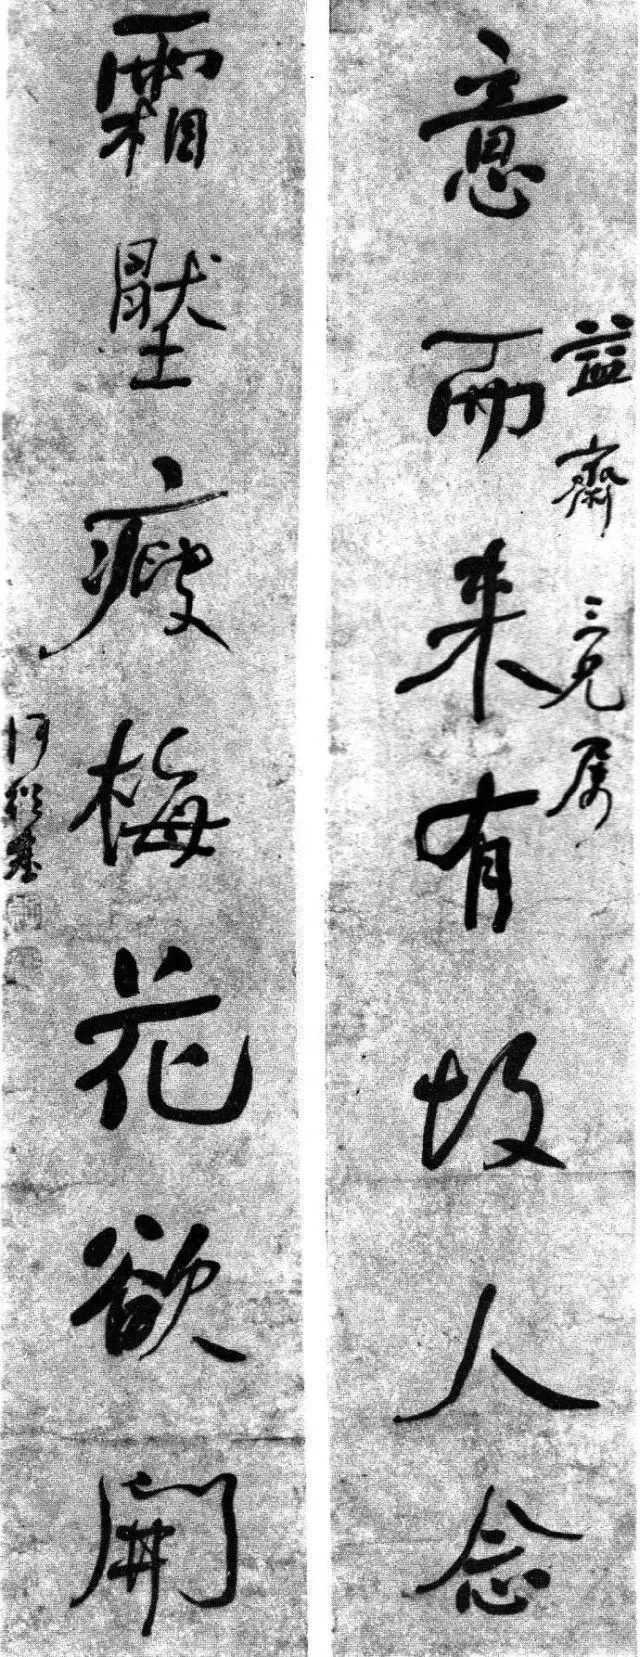 益齋三兄属
意而来有故人念
霜壓瘦梅花欲開
何紹基